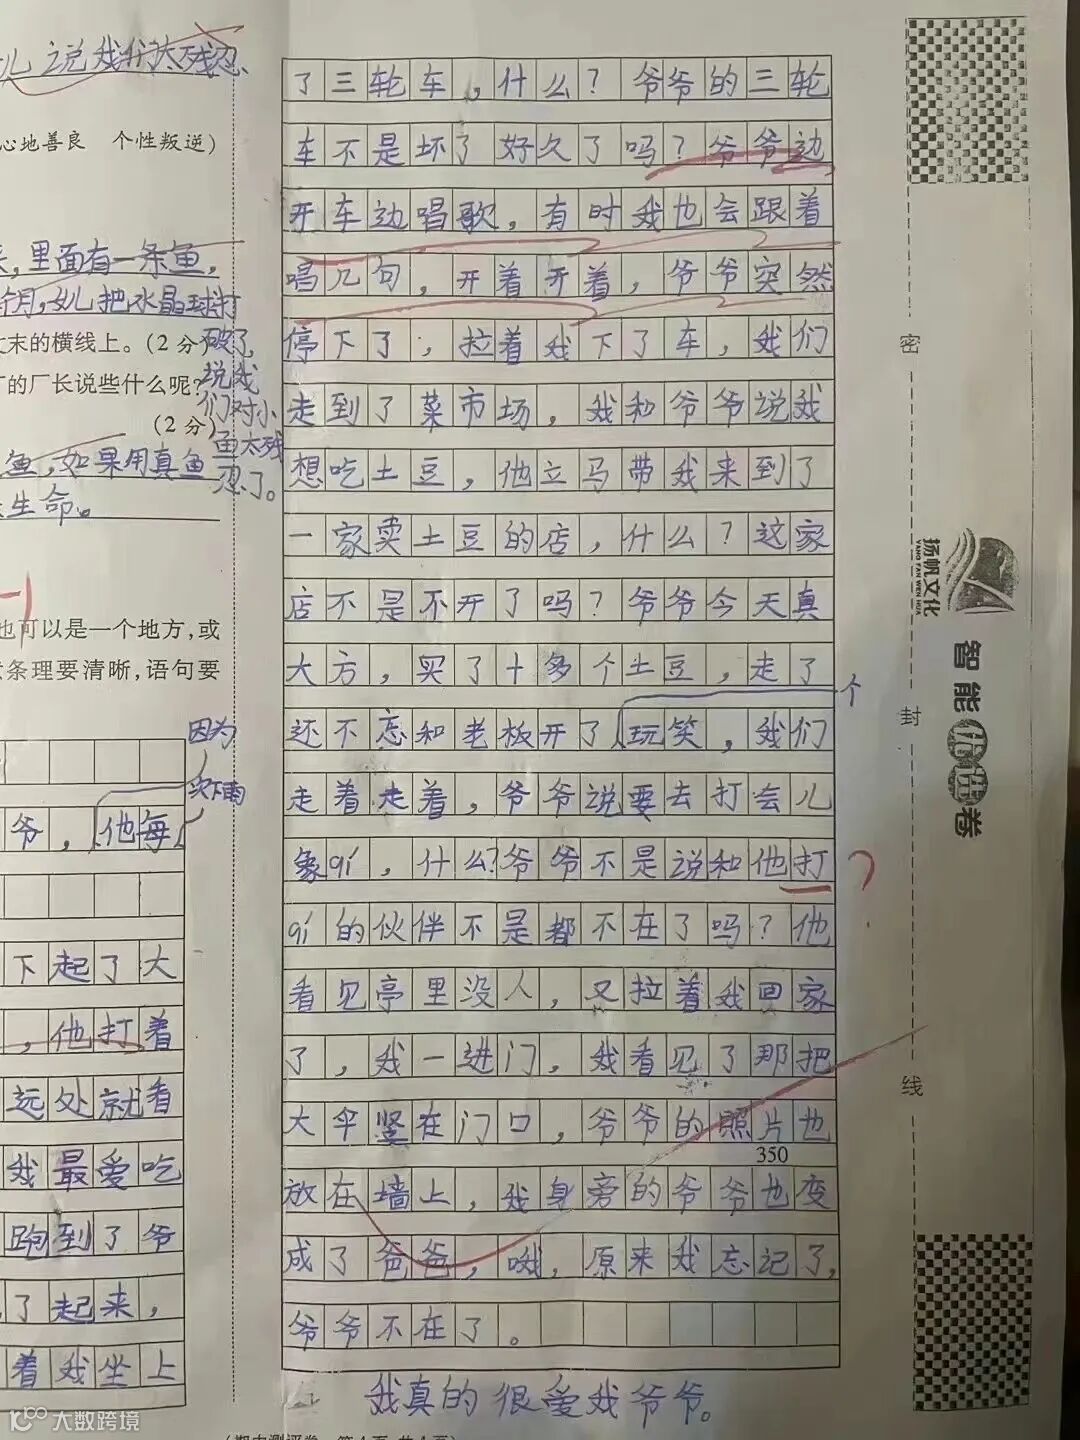 儿说我们太残忍
心地善良 个性叛逆)
，里面有一条鱼，
个月，女儿把水晶球打
文末的横线上。(2分)
破了，
厂的厂长说些什么呢?
说我
们对小
(2分)
鱼太残
忍了。
鱼，如果用真鱼
生命。
也可以是一个地方,或
条理要清晰,语句要
因为
下雨
爷，他每
下起了大
，他打着
远处就看
我最爱吃
跑到了爷
了起来，
着我坐上
了三轮车，什么？爷爷的三轮
车不是坏了好久了吗？爷爷边
开车边唱歌，有时我也会跟着
唱几句，开着开着，爷爷突然
停下了，拉着我下了车，我们
走到了菜市场，我和爷爷说我
想吃土豆，他立马带我来到了
一家卖土豆的店，什么？这家
店不是不开了吗？爷爷今天真
大方，买了十多个土豆，走了
个
还不忘和老板开了玩笑，我们
走着走着，爷爷说要去打会儿
象qí，什么？爷爷不是说和他打
qí的伙伴不是都不在了吗？他
看见亭里没人，又拉着我回家
了，我一进门，我看见了那把
大伞竖在门口，爷爷的照片也
350
放在墙上，我身旁的爷爷也变
成了爸爸，哦，原来我忘记了，
爷爷不在了。
我真的很爱我爷爷。
密
封
线
扬帆文化
YANG FAN WEN HUA
智能优选卷
大数跨境